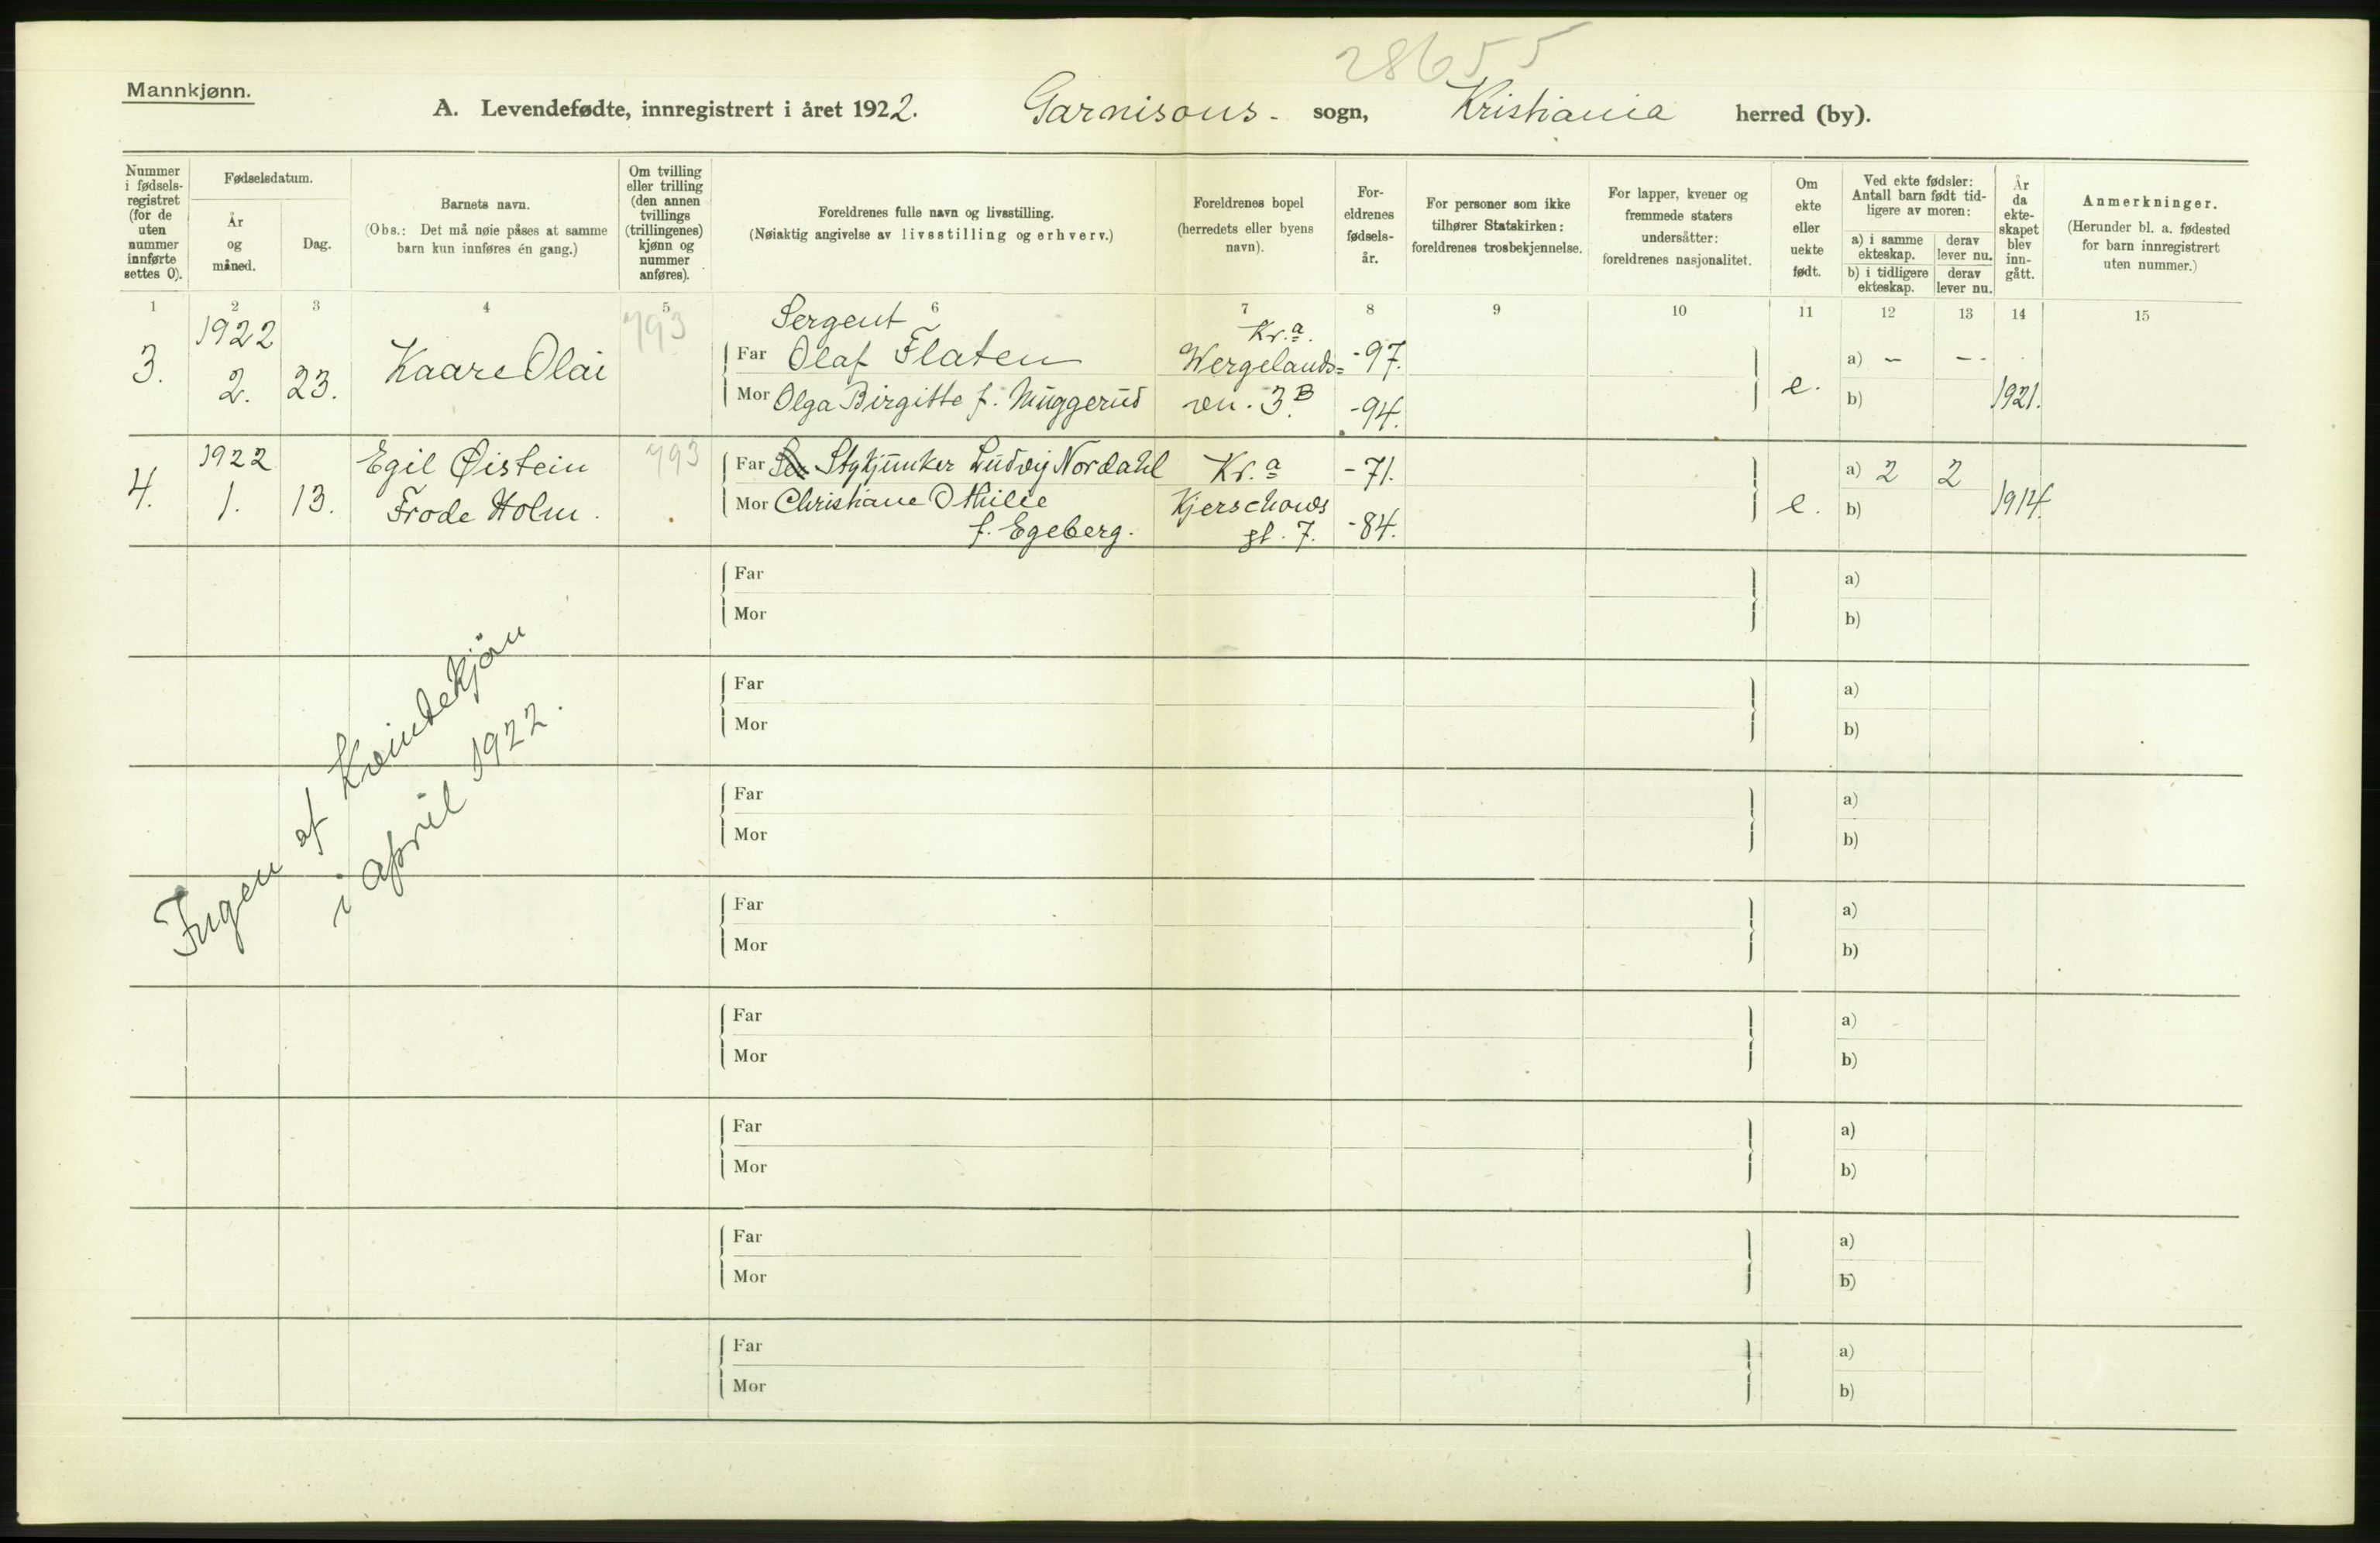 28655
Mannkjønn.
A. Levendefødte, innregistrert i året 1922. Garnisons- sogn, Kristiania herred (by).
Nummer i fødsels-registret (for de uten nummer innførte settes 0).
Fødselsdatum.
År og måned.
Dag.
Barnets navn.
(Obs.: Det må nøie påses at samme barn kun innføres én gang.)
Om tvilling eller trilling (den annen tvillings (trillingenes) kjønn og nummer anføres).
Foreldrenes fulle navn og livsstilling.
(Nøiaktig angivelse av livsstilling og erhverv.)
Foreldrenes bopel
(herredets eller byens navn).
For-eldrenes fødsels-år.
For personer som ikke tilhører Statskirken: foreldrenes trosbekjennelse.
For lapper, kvener og fremmede staters undersåtter: foreldrenes nasjonalitet.
Om ekte eller uekte født.
Ved ekte fødsler: Antall barn født tid-ligere av moren:
a) i samme ekteskap.
derav lever nu.
b) i tidligere ekteskap.
derav lever nu.
År da ekte-skapet blev inn-gått.
Anmerkninger.
(Herunder bl. a. fødested for barn innregistrert uten nummer.)
1 2 3 4 5 6 7 8 9 10 11 12 13 14 15
3. 1922 2. 23. Kaare Olai 793
Sergent
Far Olaf Flaten
Mor Olga Birgitte f. Muggerud
Kr.a.
Wergelands=
vn. 3B.
-97.
-94.
e.
a) – –
b)
1921.
4. 1922 1. 13. Egil Øistein
Frode Holm. 793
Far Stykjunker Ludvig Nordahl
Mor Christiane Othilie
f. Egeberg.
Kr.a
Kjerschows
gt. 7.
-71.
-84.
e.
a) 2 2
b)
1914.
Ingen af Kvindekjøn
i april 1922.
Far a)
Mor b)
Far a)
Mor b)
Far a)
Mor b)
Far a)
Mor b)
Far a)
Mor b)
Far a)
Mor b)
Far a)
Mor b)
Far a)
Mor b)